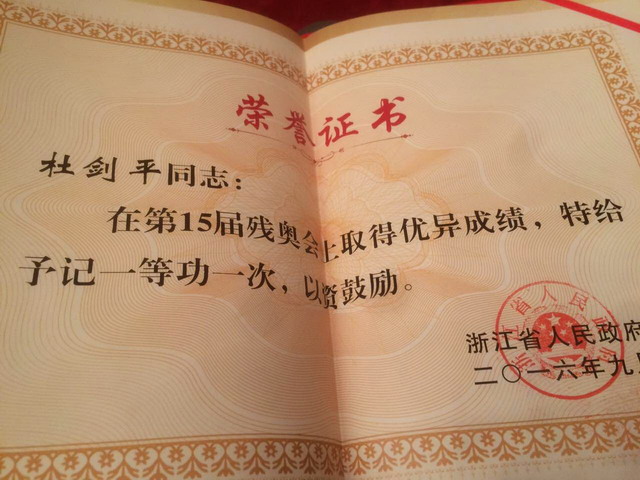 荣誉证书
杜剑平同志：
在第15届残奥会上取得优异成绩，特给
予记一等功一次，以资鼓励。
浙江省人民政府
二〇一六年九月
浙江省人民政府